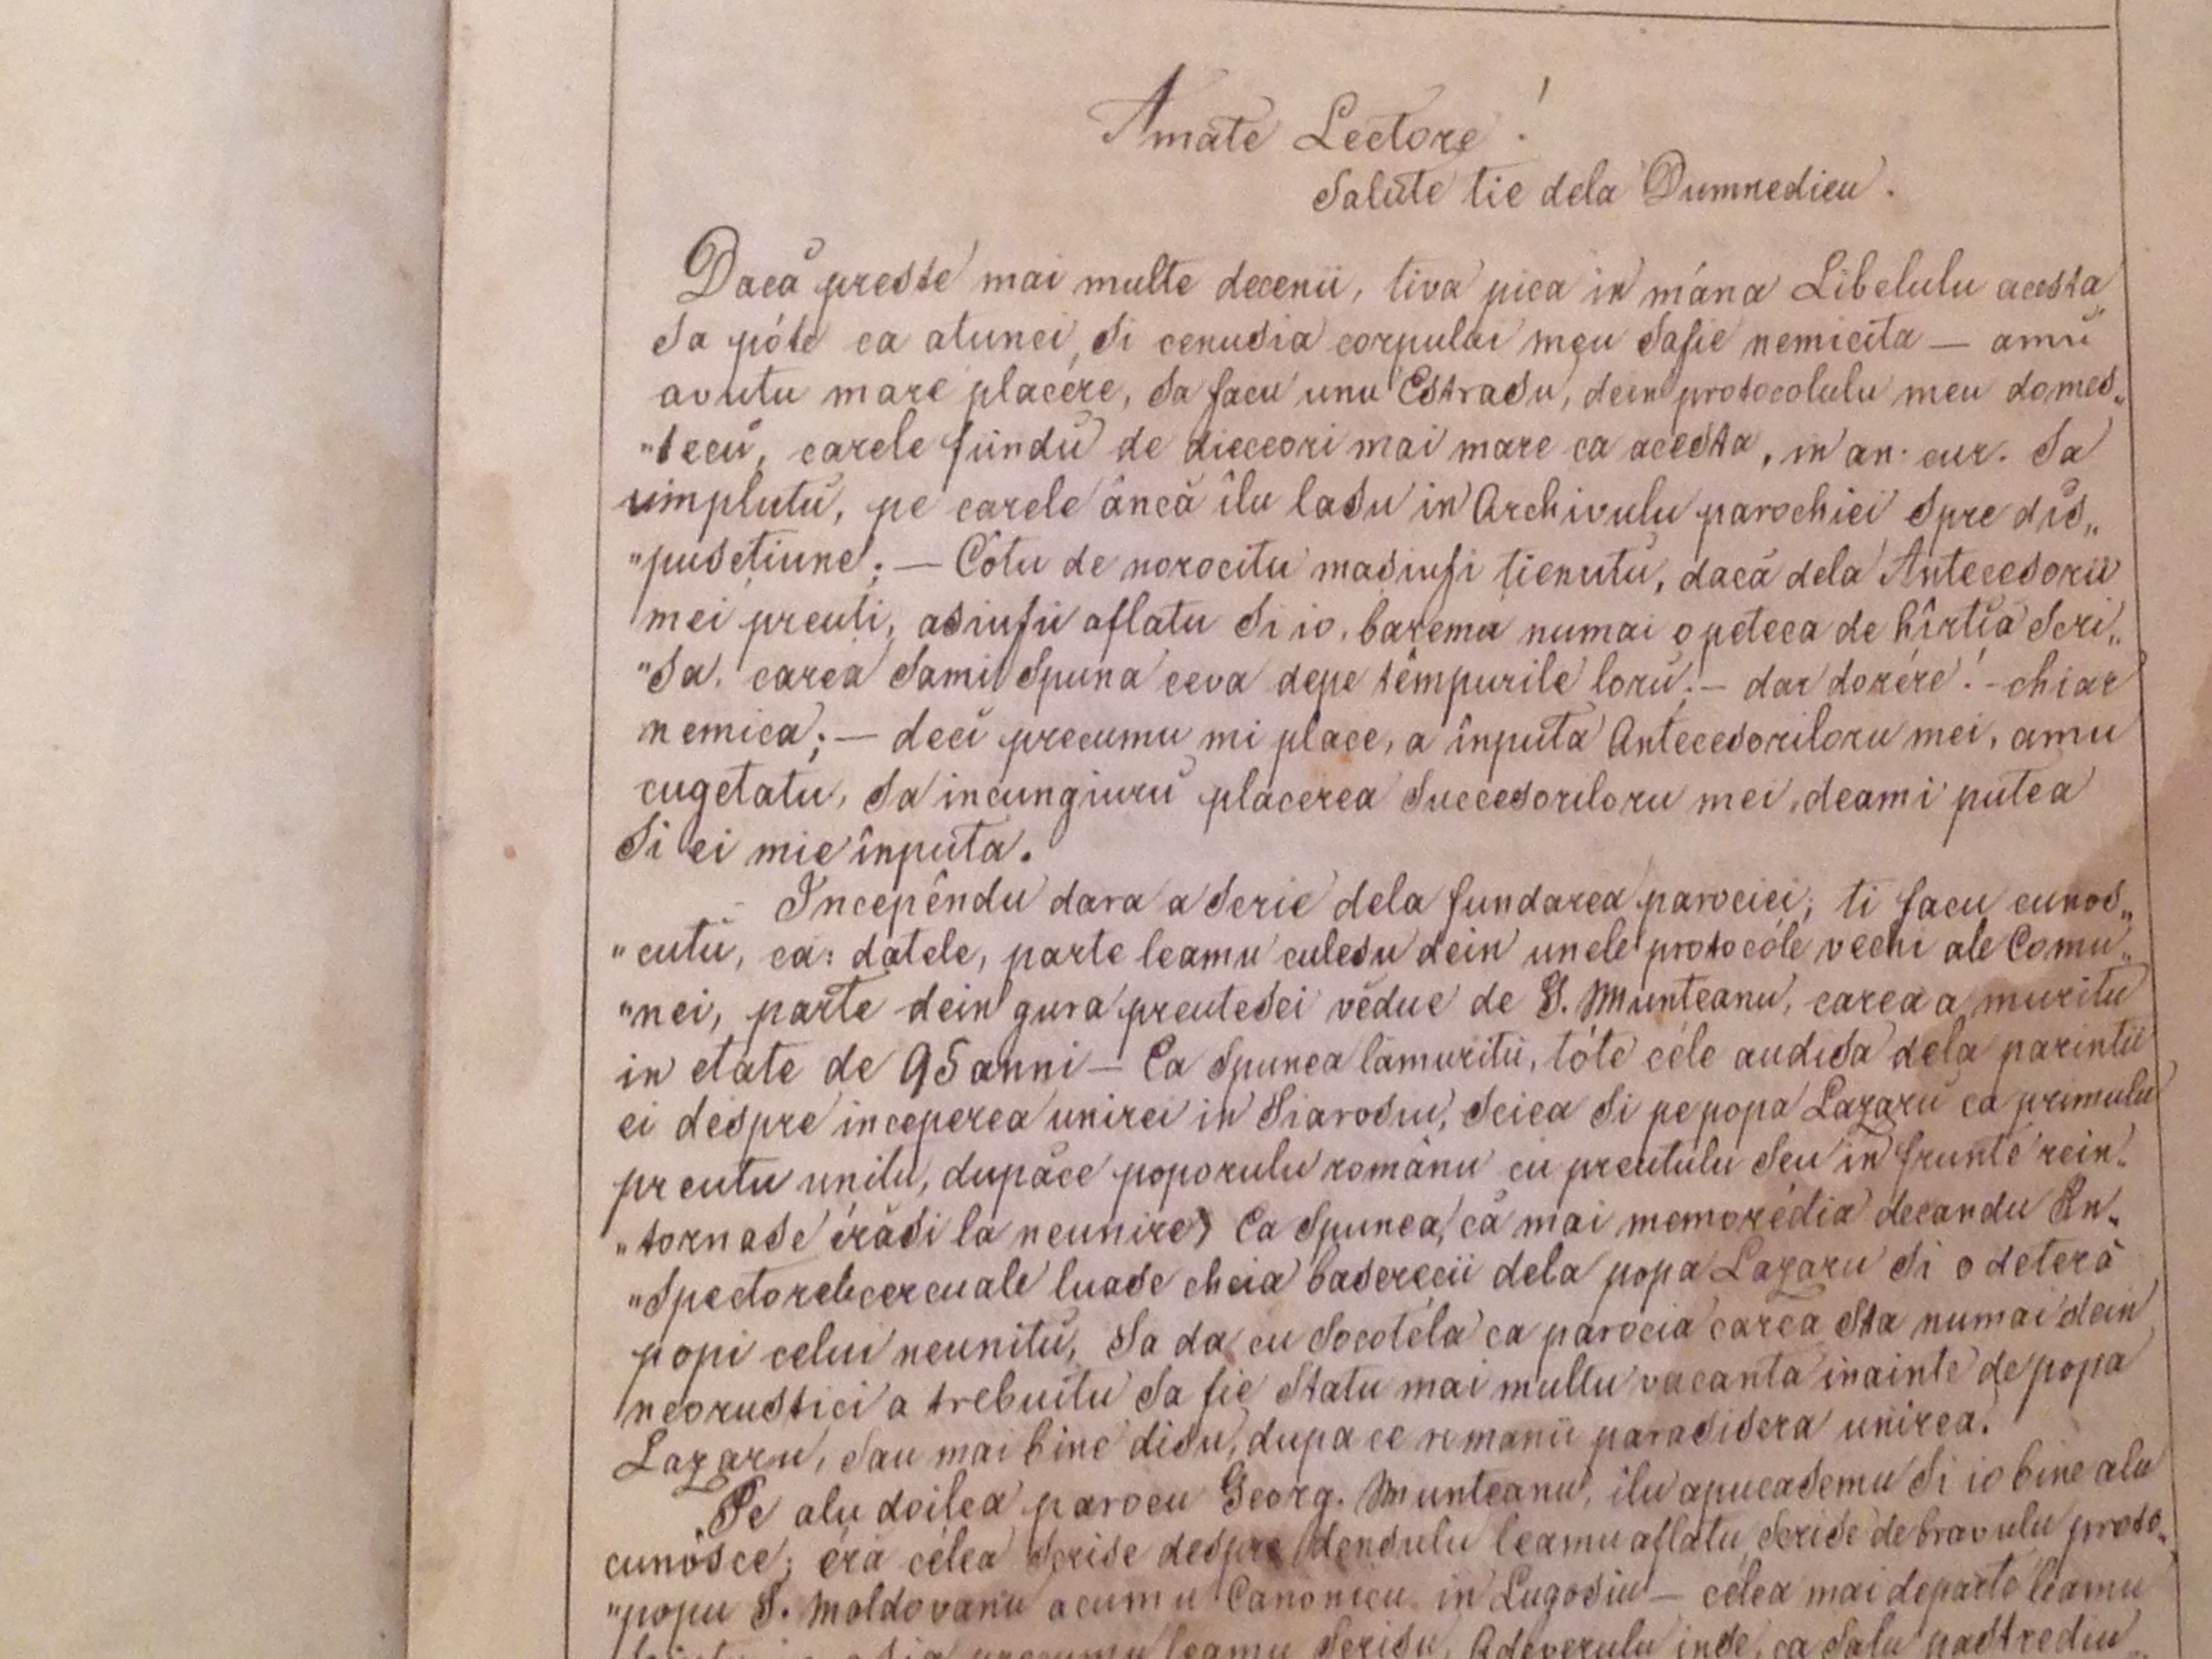 Amate Lectore!
Salute tie dela Dumnedieu.
Dacă preste mai multe decenii, tiva pica in mána Libelulu acesta
Sa póte ca atunci, Si cenusia corpului meu Safie nemicita — amŭ
avutu mare placére, Sa facu unu Estrasu, dein protocolulu meu domes„
"tecŭ, carele fiindŭ de dieceori mai mare ca acesta, in an. cur. Sa
uimplutŭ, pe carele âncă îlu lasu in Archivulu parochiei Spre dis„
"pusetiune; — Cótu de norocitu masiufi tienutŭ, dacă dela Antecesorii
mei preuti, asiufii aflatu Si io, baremu numai o peteca de hîrtia Scri„
"Sa, carea Sami Spuna ceva depe têmpurile lorŭ; — dar dorére! - chiar
nemica; — deci precumu mi place, a înputa Antecesoriloru mei, amu
cugetatu, Sa incungiurŭ placerea Succesoriloru mei, deami putea
Si ei mie înputa.
Incepêndu dara a Scrie dela fundarea parociei, ti facu cunos„
"cutu, ca: datele, parte leamu culesu dein unele protocóle vechi ale Comu„
"nei, parte dein gura preutesei vĕdue de G. Munteanu, carea a muritu
in etate de 95 anni — Ea Spunea lamuritu, tóte céle audisa dela parintii
ei despre inceperea unirei in Siarosiu, Sciea Si pe popa Lazarŭ ca primulu
preutu unitu, dupăce poporulu românu cu preutulu Seu in frunte rein„
"tornase érăsi la neunire; Ea Spunea, că mai memorédia decandu In„
"Spectorele cercuale luase cheia baserecii dela popa Lazaru Si o deteră
popi celui neunitŭ, Sa da cu Socotéla ca parocia carea Sta numai dein
neorustici a trebuitu Sa fie Statu mai multu vacanta inainte de popa
Lazaru, Sau mai bine disu, dupa ce romanii parasisera unirea.
Pe alu doilea parocu Georg. Munteanu, ilu apucasemu Si io bine alu
cunósce; éra célea Scrise despre densulu leamu aflatu Scrise de bravulu proto„
"popu S. Moldovanu acumu Canonicu in Lugosiu — célea mai departe leamu
precumu leamu Scrisu, Adeverulu inse, ca Salu pastrediu